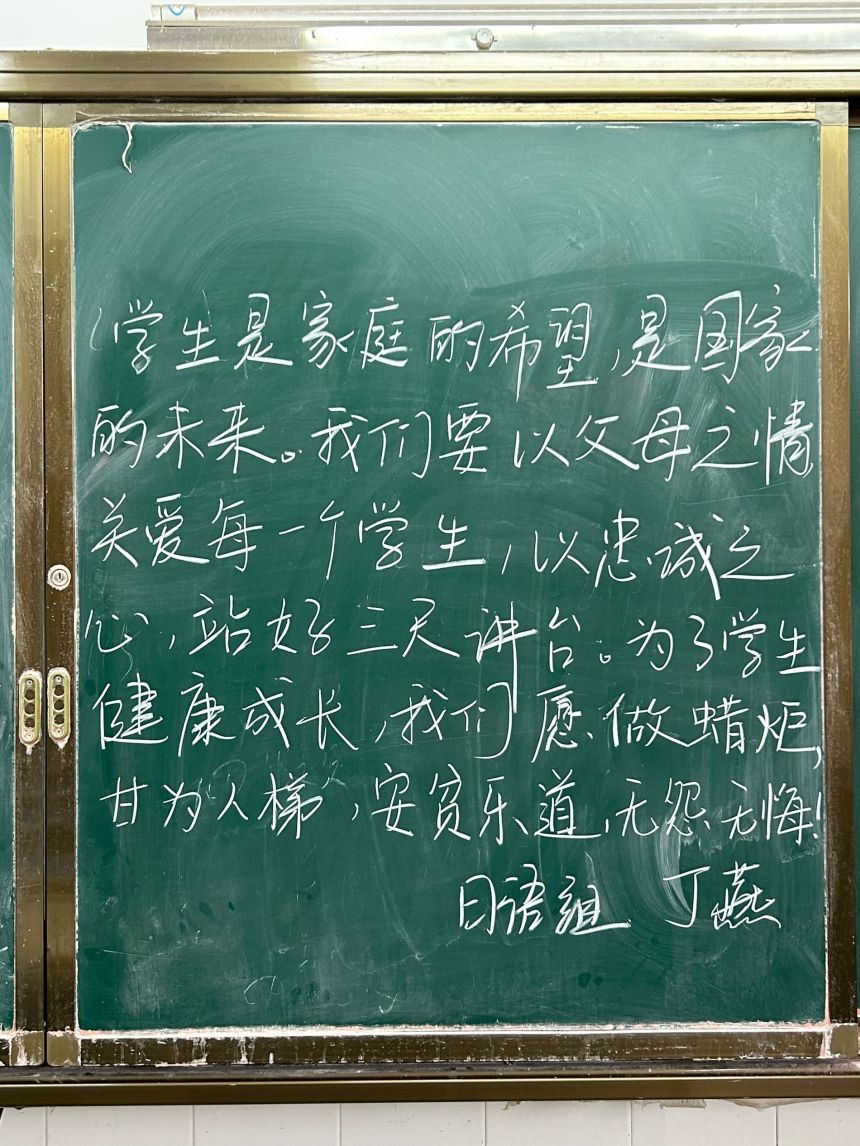 学生是家庭的希望,是国家
的未来。我们要以父母之情
关爱每一个学生,以忠诚之
心,站好三尺讲台。为了学生
健康成长,我们愿做蜡炬,
甘为人梯,安贫乐道,无怨无悔!
日语组 丁燕